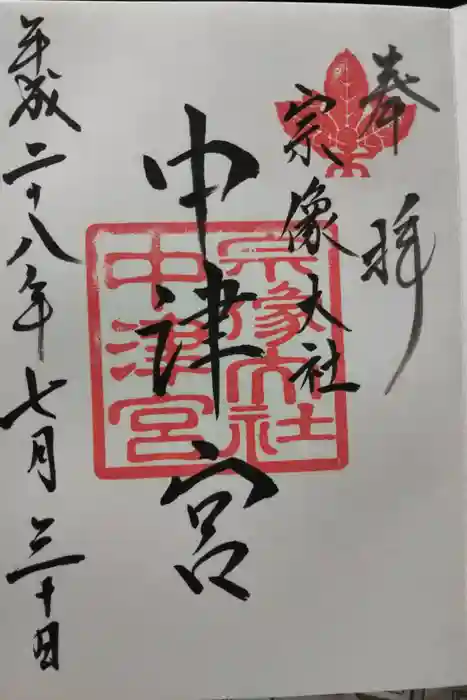 奉拝
宗像大社
中津宮
宗像大社
中津宮
平成二十八年七月三十日